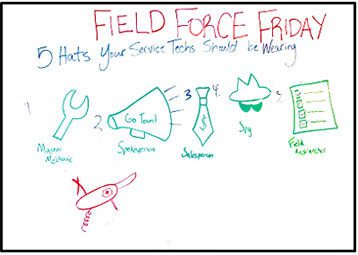 FIELD FORCE FRIDAY
5 Hats Your Service Techs Should be Wearing
1.
2.
3.
4.
5.
Go Team!
$
Master Mechanic
Spokesperson
Salesperson
Spy
Field Researcher